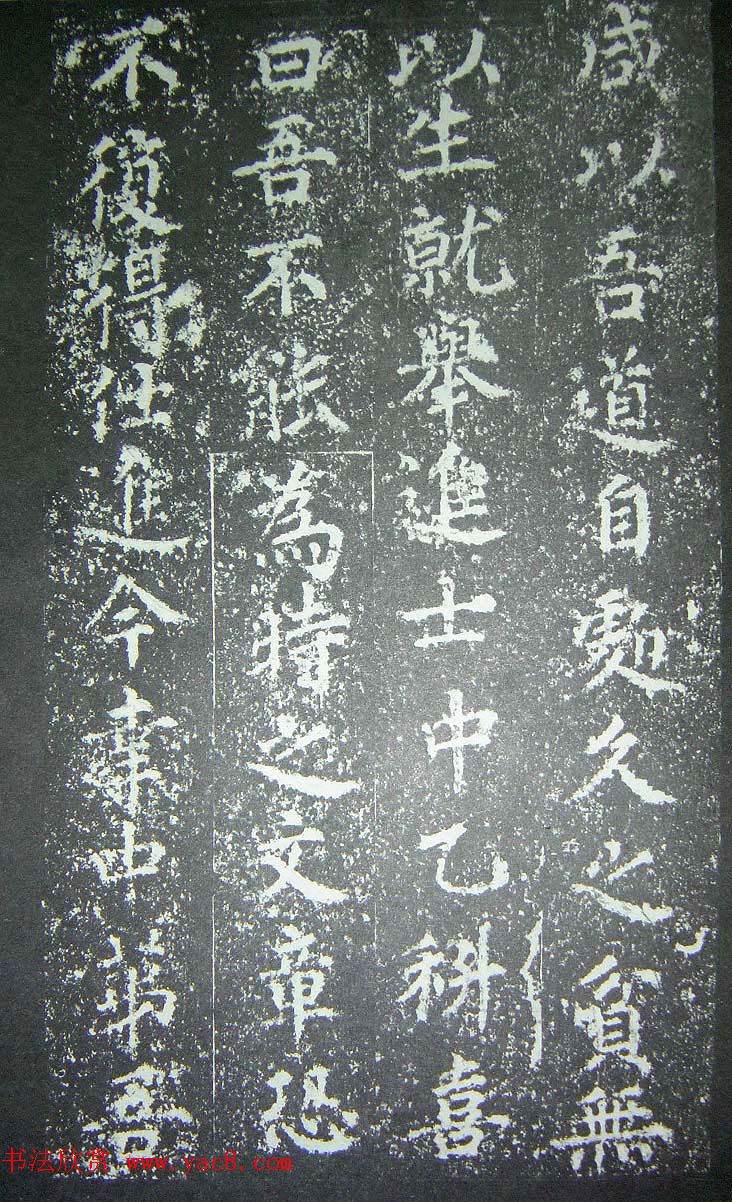 咸以吾道自久之貧無
以生就舉進士中乙科喜
曰吾不能為時之文章恐
不復得仕進今幸中第吾
书法欣赏 www.yac8.com